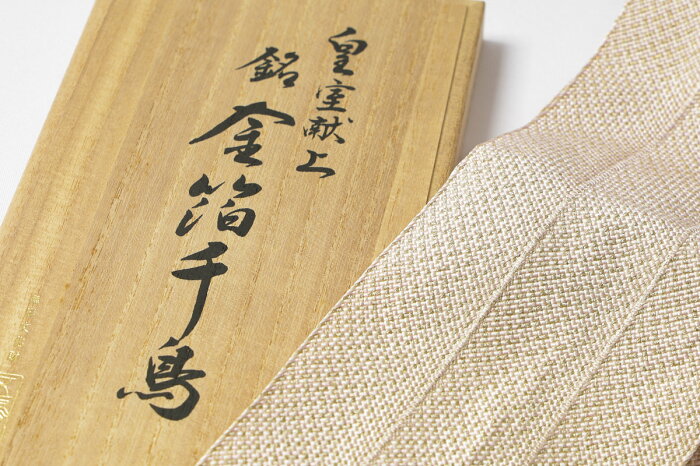 皇室献上
銘
金箔千鳥